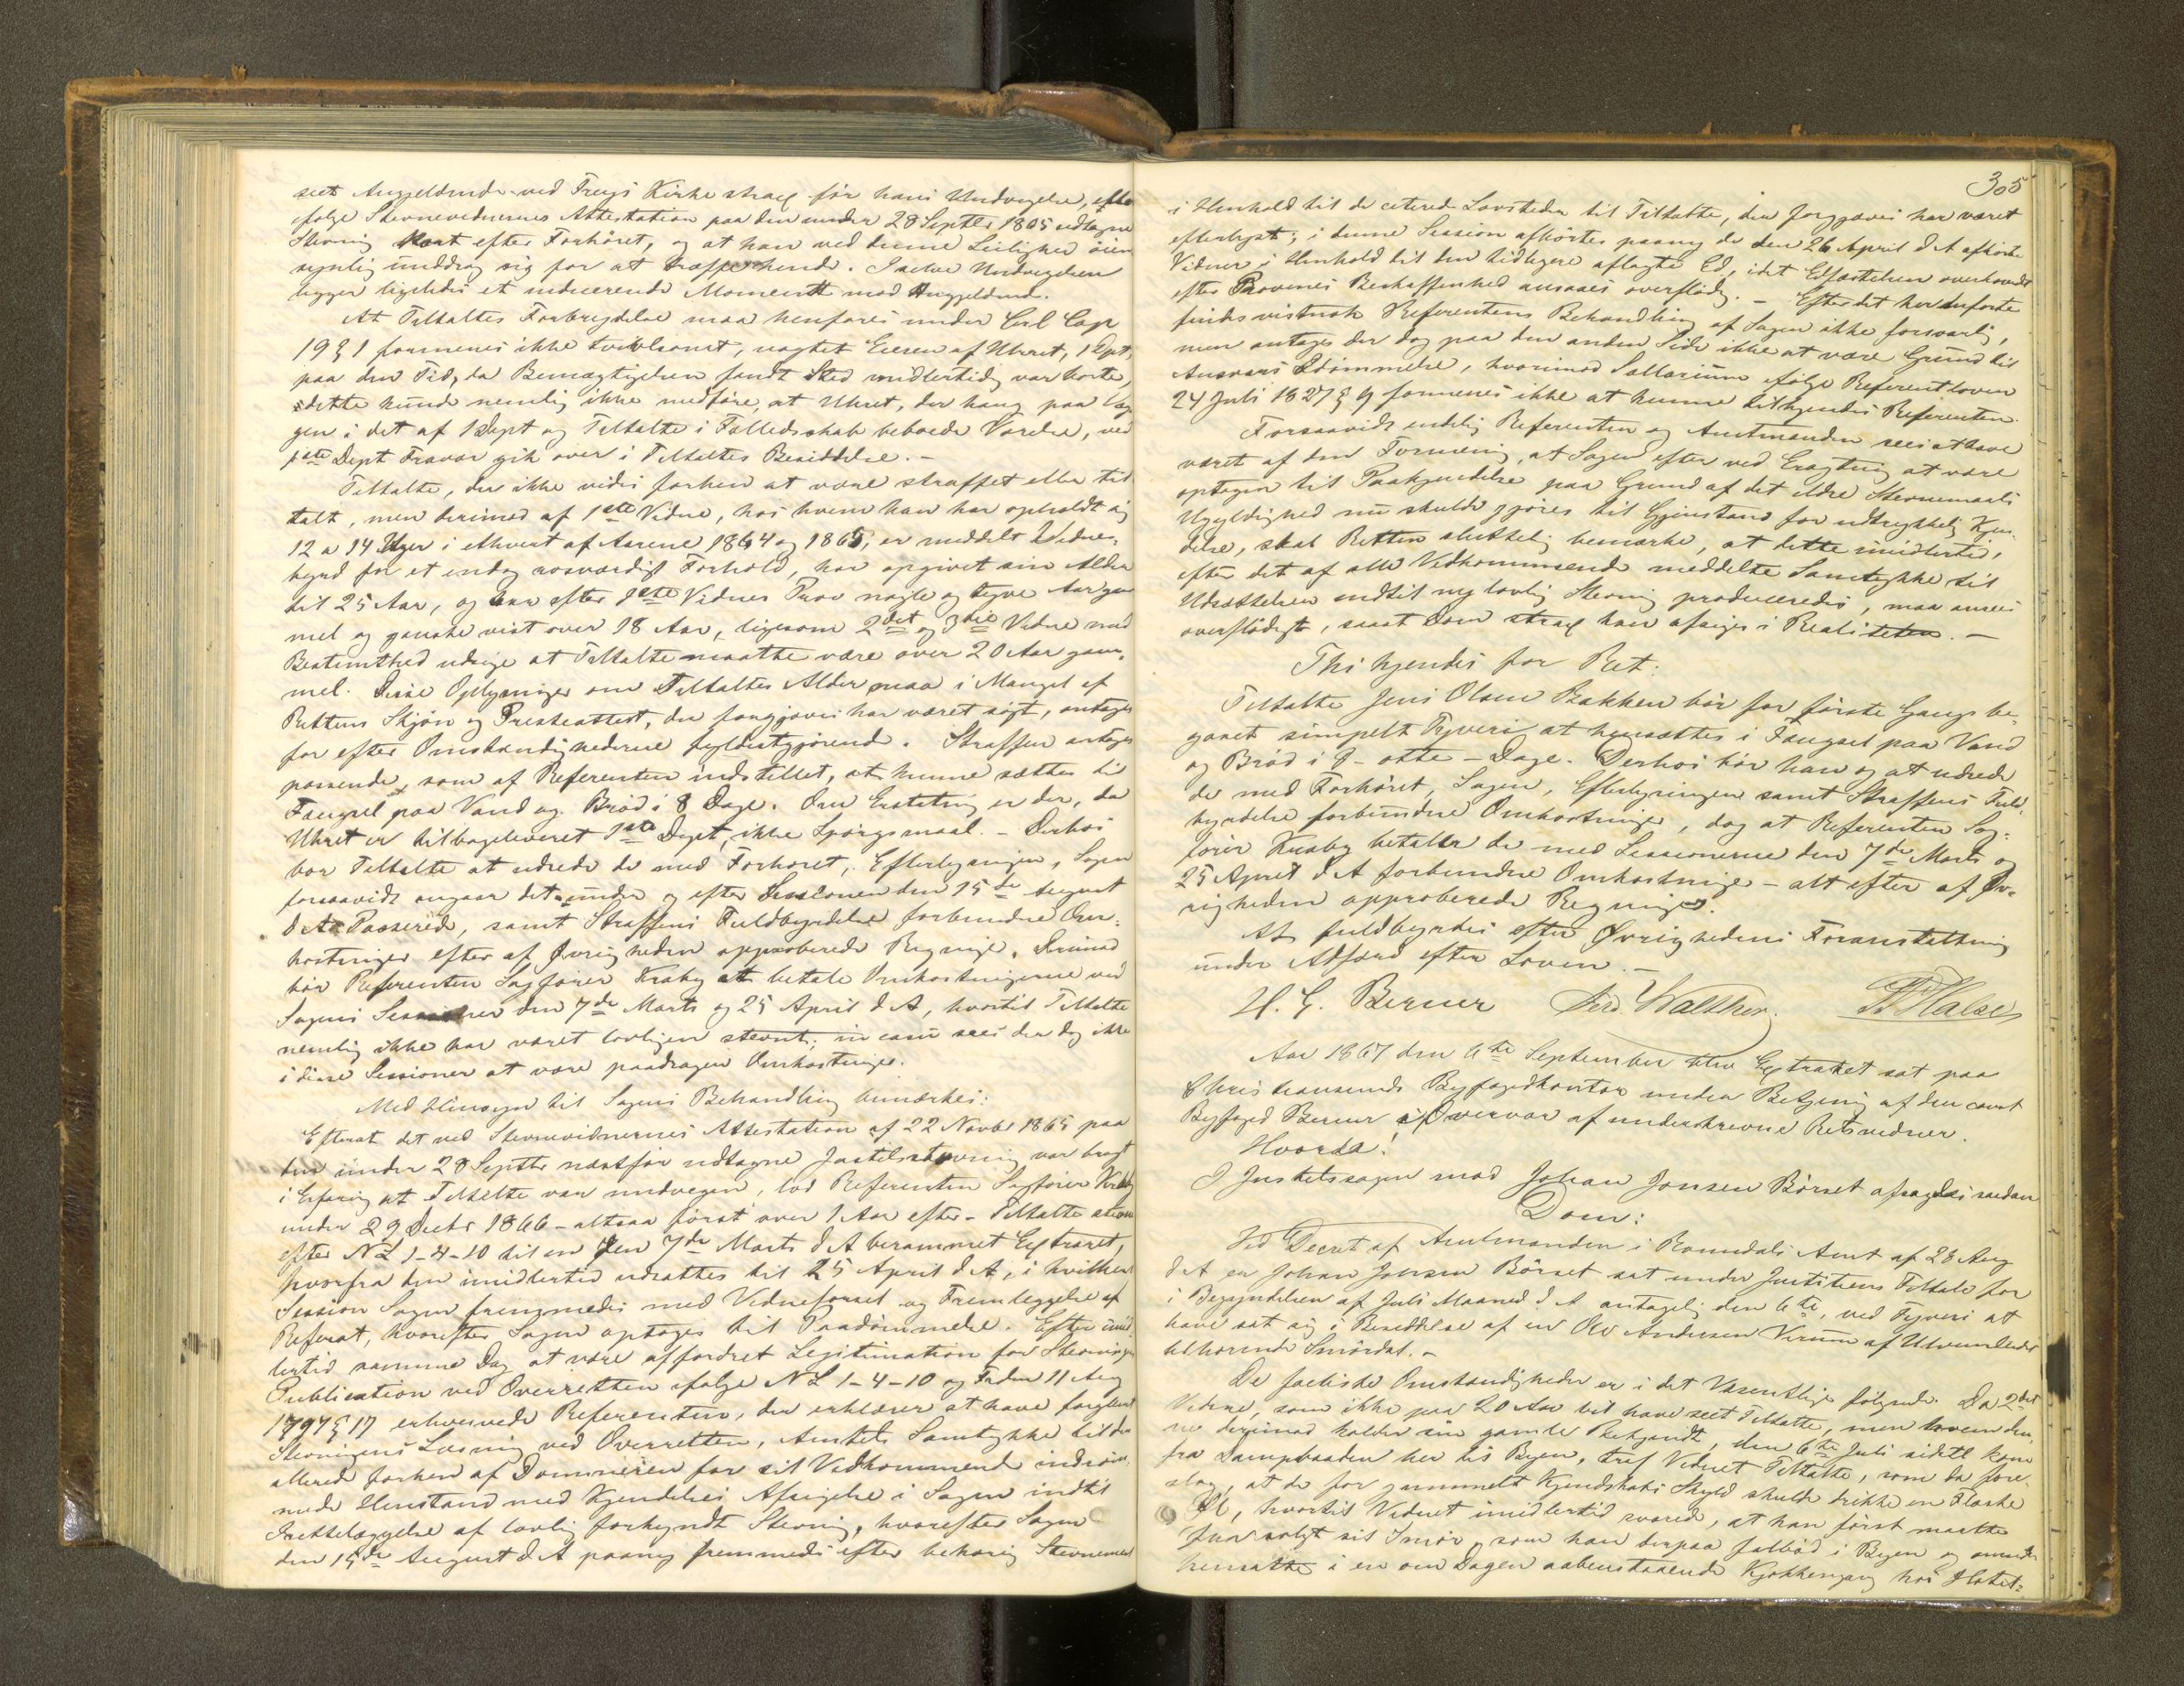 seet Angjeldende ved Freys Kirke strax før hans Undvigelse, efter
ifølge Stevnevidnernes Attestation paa den under 28 Septbr 1865 udtagne
Stevning kort efter Forhöret, og at han ved denne Leilighed öien
synlig unddrog sig for at træffe hende. I selve Undvigelsen
ligger ligeledes et inducerende Moment mod Angjeldende.
At Tiltaltes Forbrydelse maa henføres under Crl Cap
19 § 1 formenes ikke tvivlsomt, uagtet Eieren af Uhret, 1 Dpt,
paa den Tid, da Bemægtigelsen fandt Sted midlertidig var borte,
idet dette kunde nemlig ikke medføre, at Uhret, der hang paa Væg
gen i det af 1 Dept og Tiltalte i Fælledsskab beboede Værelse, ved
1ste Dept Fravær gik over i Tiltaltes Besiddelse. -
Tiltalte, der ikke vides forhen at være straffet eller til
talt, men derimod af 1ste Vidne, hos hvem han har opholdt sig
12 a 14 Uger i ethvert af Aarene 1864 og 1865, er meddelt Vidnes
byrd for et endog rosværdigt Forhold, har opgivet sin Alder
til 25 Aar, og han efter 1ste Vidnes Prov nogle og tyve Aar gam
mel og ganske vist over 18 Aar, ligesom 2det og 3die Vidne med
Bestemthed udsige at Tiltalte maatte være over 20 Aar gam,
mel. Disse Oplysninger om Tiltaltes Alder maa i Mangel af
Rettens Skjøn og Presteattest, der forgjæves har været søgt, antages
for efter Omstændighederne fyldestgjørende. Straffen antages
passende, som af Referenten indstillet, at kunne sættes til
Fængsel paa Vand og Brød i 8 Dage. Om Erstatning er der, da
Uhret er tilbageleveret 1ste Dept, ikke Spørgsmaal. - Derhos
bør Tiltalte at udrede de med Forhøret, Efterlysningen, Sagen
forsaavidt angaar det under og efter Sessionen den 15de August
d A Passerede, samt Straffens Fuldbyrdelse forbundne Om-
kostninger efter af Øvrigheden approberede Regninger. Derimod
bør Referenten Sagfører Kraby at betale Omkostningerne ved
Sagens Sessioner den 7de Marts og 25 April d A, hvortil Tiltalte
nemlig ikke har været lovligen stevnt; in casu sees der dog ikke
i disse Sessioner at være paadragen Omkostninger.
Med Hensyn til Sagens Behandling bemærkes:
Efterat det ved Stevnevidnernes Attestation af 22 Novbr 1865 paa
den under 28 Septbr næstfør udtagne Justitsstevning var bragt
i Erfaring at Tiltalte var undvegen, lod Referenten Sagfører Kraby
under 29 Decbr 1866 - altsaa først over 1 Aar efter - Tiltalte stevne
efter N L 1-4-10 til en den 7de Marts d A berammet Extraret,
hvorfra den imidlertid udsattes til 25 April d A, i hvilken
Session Sagen fremmedes med Vidneførsel og Fremleggelse af
Referat, hvorefter Sagen optoges til Paadømmelse. Efter imid
lertid samme Dag at være affordret Legitimation for Stevningens
Publication ved Overretten ifølge N L 1-4-10 og Frdn 11 Aug
1797 § 17 erhvervede Referenten, der erklærer at have forglemt
Stevningens Læsning ved Overretten, Amtets Samtykke til den
allerede forhen af Dommeren for sit Vedkommende indrøm
mede Henstand med Kjendelses Afsigelse i Sagen indtil
Irettelæggelse af lovlig forkyndt Stevning, hvorefter Sagen
den 15de August d A paany fremmedes efter behørig Stevnement
305
i Henhold til de citerede Lovsteder til Tiltalte, der forgjæves har været
efterlyst; i denne Session afhørtes paany de den 26 April d A afhørte
Vidner i Henhold til den tidligere aflagte Ed, idet Edfæstelsen overhovedet
efter Provenes Beskaffenhed ansaaes overflödig. - Efter det her Anførte
findes vistnok Referentens Behandling af Sagen ikke forsvarlig,
men antages der dog paa den anden Side ikke at være Grund til
Ansvars Idömmelse, hvorimod Sallarium ifølge Referentloven
24 Juli 1827 § 9 formenes ikke at kunne tilkjendes Referenten.
Forsaavidt endelig Referenten og Amtmanden sees at have
været af den Formening, at Sagen efter ved Eragtning at være
optagen til Paakjendelse paa Grund af det ældre Stevnemaals
Ugyldighed nu skulde gjöres til Gjenstand for udtrykkelig Kjen-
delse, skal Retten sluttelig bemærke, at dette imidlertid,
efter det af alle Vedkommende meddelte Samtykke til
Udsættelsen indtil ny lovlig Stevning produceredes, maa ansees
overflødigt, saa at Dom strax kan afsiges i Realiteten. -
Thi kjendes for Ret:
Tiltalte Jens Olsen Bakken bör for förste Gangs be-
gaaet simpelt Tyveri at hensættes i Fængsel paa Vand
og Bröd i 8 - otte - Dage. Derhos bör han og at udrede
de med Forhöret, Sagen, Efterlysningen samt Straffens Fuld
byrdelse forbundne Omkostninger, dog at Referenten Sag-
förer Kraby betaler de med Sessionerne den 7de Marts og
25 April d A forbundne Omkostninger - alt efter af Øv-
righeden approberede Regninger.
At fuldbyrdes efter Øvrighedens Foranstaltning
under Adfærd efter Loven. -
H. G. Berner Ferd. Walther. Halse
Aar 1867 den 6te September blev Extraret sat paa
Christiansunds Byfogedkontor under Betjening af den const
Byfoged Berner i Overvær af underskrevne Retsvidner.
Hvorda!
I Justitssagen mod Johan Jonsen Börset afsagdes saadan
Dom:
Ved Decret af Amtmanden i Romsdals Amt af 28 Aug
d A er Johan Johnsen Börset sat under Justitiens Tiltale for
i Begyndelsen af Juli Maaned d A antagelig den 6te, ved Tyveri at
have sat sig i Besiddelse af en Ole Andersen Virum af Ulvundeidet
tilhørende Smördal. -
De factiske Omstændigheder er i det Væsentlige følgende. Da 2det
Vidne, som ikke paa 20 Aar vil have seet Tiltalte, men hvem den-
ne derimod kalder sin gamle Bekjendt, den 6te Juli sidstl kom
fra Dampbaaden her til Byen, traf Vidnet Tiltalte, som da fore
slog, at de for gammelt Kjendskabs Skyld skulde drikke en Flaske
Öl, hvortil Vidnet imidlertid svarede, at han först maatte
faa solgt sit Smör, som han derpaa falböd i Byen og
hensatte i en om Dagen aabenstaaende Kjøkkengang hos Hotel-